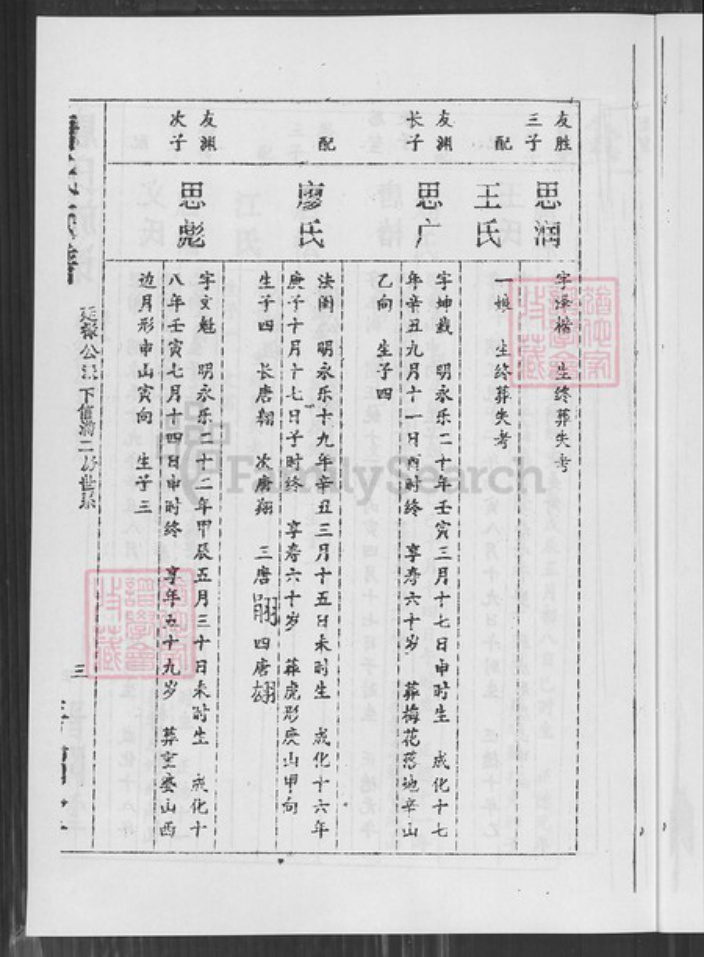 友胜
三子
思润
字泽楷 生终葬失考
配
王氏
一娘 生终葬失考
友渊
长子
思广
字坤载 明永乐二十年壬寅三月十七日申时生 成化十七
年辛丑九月十一日酉时终 享寿六十岁 葬梅花落地辛山
乙向 生子四
配
廖氏
法闺 明永乐十九年辛丑三月十五日未时生 成化十六年
庚子十月十七日子时终 享寿六十岁 葬虎形庚山甲向
生子四 长唐翔 次唐翔 三唐 四唐翃
友渊
次子
思彪
字文魁 明永乐二十二年甲辰五月三十日未时生 成化十
八年壬寅七月十四日申时终 享年五十九岁 葬 山西
边月形申山寅向 生子三
公 下值 二 世系
三
FamilySearch